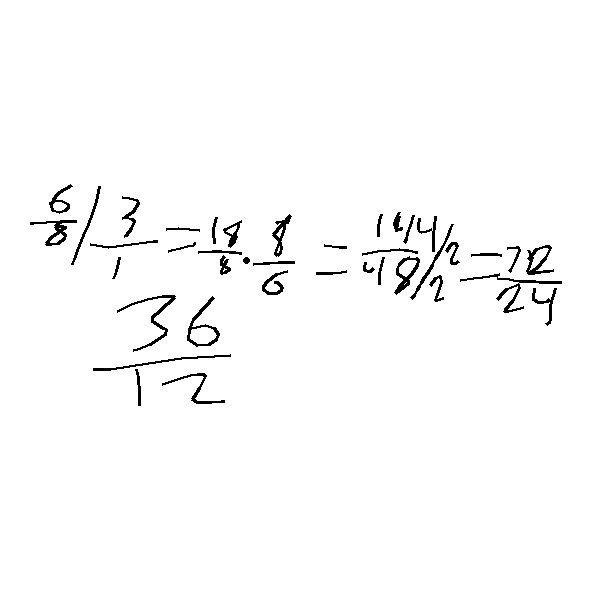 6/8 / 3/1 = 18/8 · 8/6 = 144/2 / 48/2 = 72/24
36/12